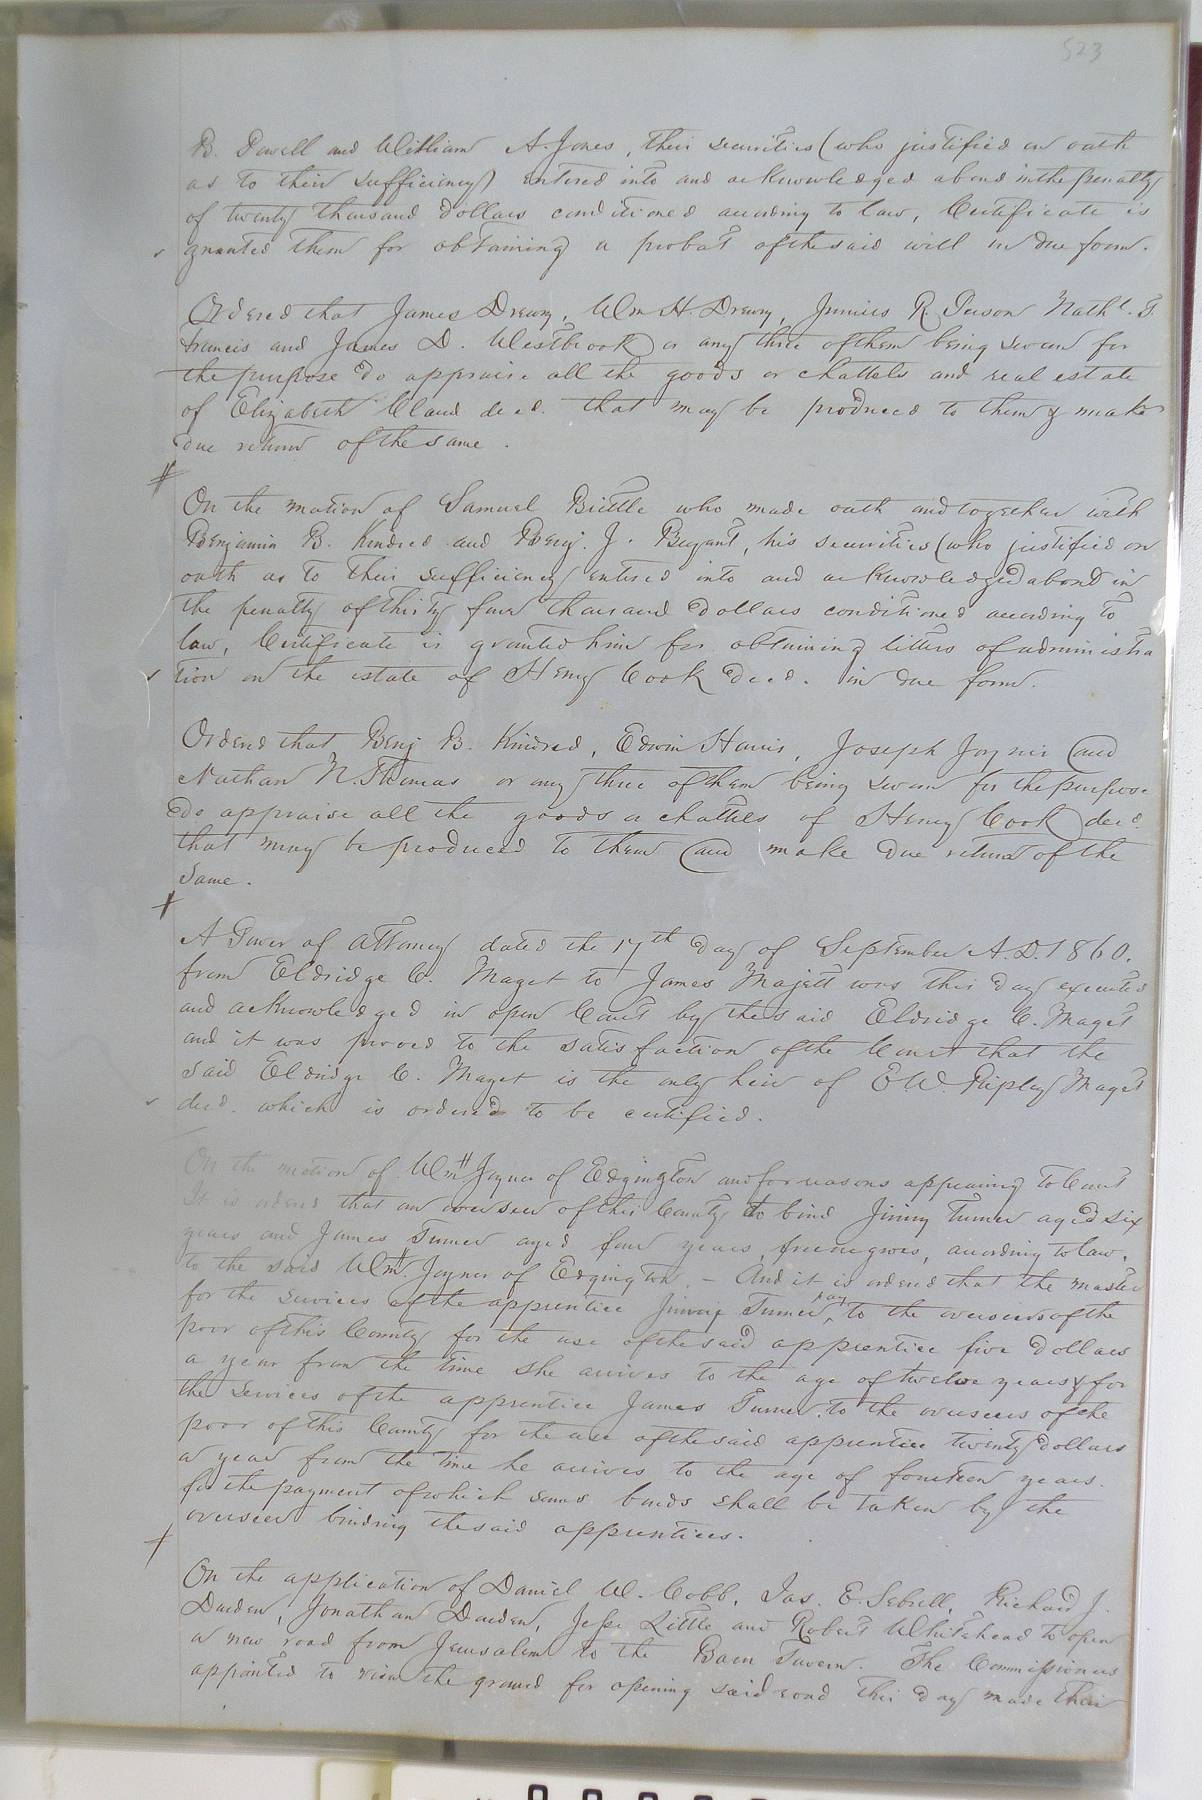 523
B. Powell and William A. Jones, their securities (who justified on oath
as to their sufficiency) entered into and acknowledged a bond in the penalty
of twenty thousand dollars conditioned according to law, Certificate is
granted them for obtaining a probat of the said will in due form.
Ordered that James Drewry, Wm H. Drewry, Junius R. Person Nathl. T.
Francis and James D. Westbrook or any three of them being sworn for
the purpose do appraise all the goods or chattels and real estate
of Elizabeth Claud decd. that may be produced to them & make
due return of the same.
On the motion of Samuel Brittle who made oath and together with
Benjamin B. Kindred and Benj. J. Bryant, his securities (who justified on
oath as to their sufficiency entered into and acknowledged a bond in
the penalty of thirty four thousand dollars conditioned according to
law, Certificate is granted him for obtaining letters of administra
tion on the estate of Henry Cook decd. in due form.
Ordered that Benj B. Kindred, Edwin Harris, Joseph Joyner and
Nathan N. Thomas or any three of them being sworn for the purpose
do appraise all the goods or chattels of Henry Cook decd.
that may be produced to them and make due return of the
same.
A Power of Attorney dated the 17th day of September A.D. 1860.
from Eldridge C. Maget to James Majett was this day executed
and acknowledged in open Court by the said Eldridge C. Maget
and it was proved to the satisfaction of the Court that the
said Eldridge C. Maget is the only heir of E W. Ripley Maget
decd. which is ordered to be certified.
On the motion of Wm H Joyner of Edgington and for reasons appearing to Court
It is ordered that an overseer of this County do bind Jinny Turner aged six
years and James Turner aged four years, free negroes, according to law,
to the said Wm H. Joyner of Edgington. - And it is ordered that the master
for the services of the apprentice Jinny Turner, pay to the overseers of the
poor of this County for the use of the said apprentice five dollars
a year from the time she arrives to the age of twelve years & for
the services of the apprentice James Turner, to the overseers of the
poor of this County for the use of the said apprentice twenty dollars
a year from the time he arrives to the age of fourteen years.
for the payment of which sums bonds shall be taken by the
overseer binding the said apprentices.
On the application of Daniel W. Cobb, Jas. E. Sebrell, Richard J.
Darden, Jonathan Darden, Jesse Little and Robert Whitehead to open
a new road from Jerusalem to the Barn Tavern. The Commissioners
appointed to view the ground for opening said road this day made their